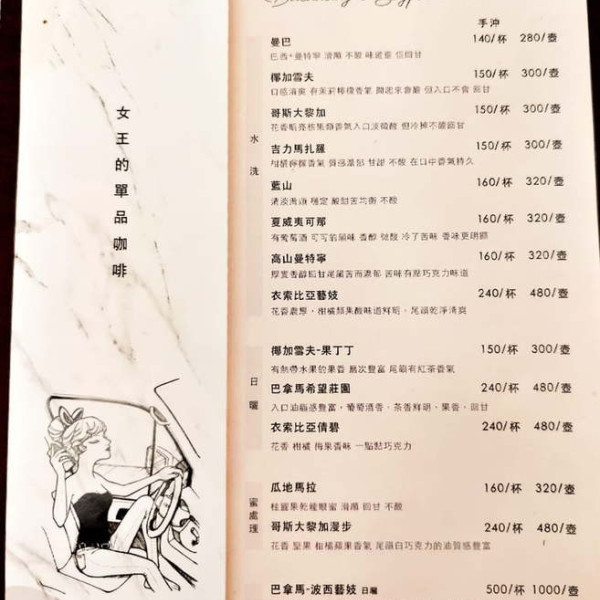 女王的單品咖啡
手沖
水洗
曼巴 140/杯 280/壺
巴西+曼特寧 滑順 不酸
椰加雪夫 150/杯 300/壺
口感清爽 有茉莉檸檬香氣 聞起來會酸 但入口不會 回甘
哥斯大黎加 150/杯 300/壺
吉力馬扎羅 150/杯 300/壺
柑橘檸檬香氣 質感濃郁 甘甜 不酸 在口中香氣持久
藍山 160/杯 320/壺
清淡滑順 穩定 酸甜苦均衡 不酸
夏威夷可那 160/杯 320/壺
有葡萄酒 可可的韻味 香醇 微酸 冷了苦味 香味更明顯
高山曼特寧 160/杯 320/壺
厚實香醇回甘尾韻苦而濃郁 苦味有點巧克力味道
衣索比亞藝妓 240/杯 480/壺
花香濃郁，柑橘類果酸味道鮮明，尾韻乾淨清爽
日曬
椰加雪夫-果丁丁 150/杯 300/壺
有熱帶水果的果香 層次豐富 尾韻有紅茶香氣
巴拿馬希望莊園 240/杯 480/壺
入口油脂感豐富，葡萄酒香，茶香鮮明，果香，回甘
衣索比亞倩碧 240/杯 480/壺
花香 柑橘 梅果香味 一點點巧克力
蜜處理
瓜地馬拉 160/杯 320/壺
桂圓果乾 滑順 回甘 不酸
哥斯大黎加漫步 240/杯 480/壺
花香 堅果 柑橘蘋果香氣 尾韻白巧克力的油質感豐富
巴拿馬-波西藝妓 日曬 500/杯 1000/壺